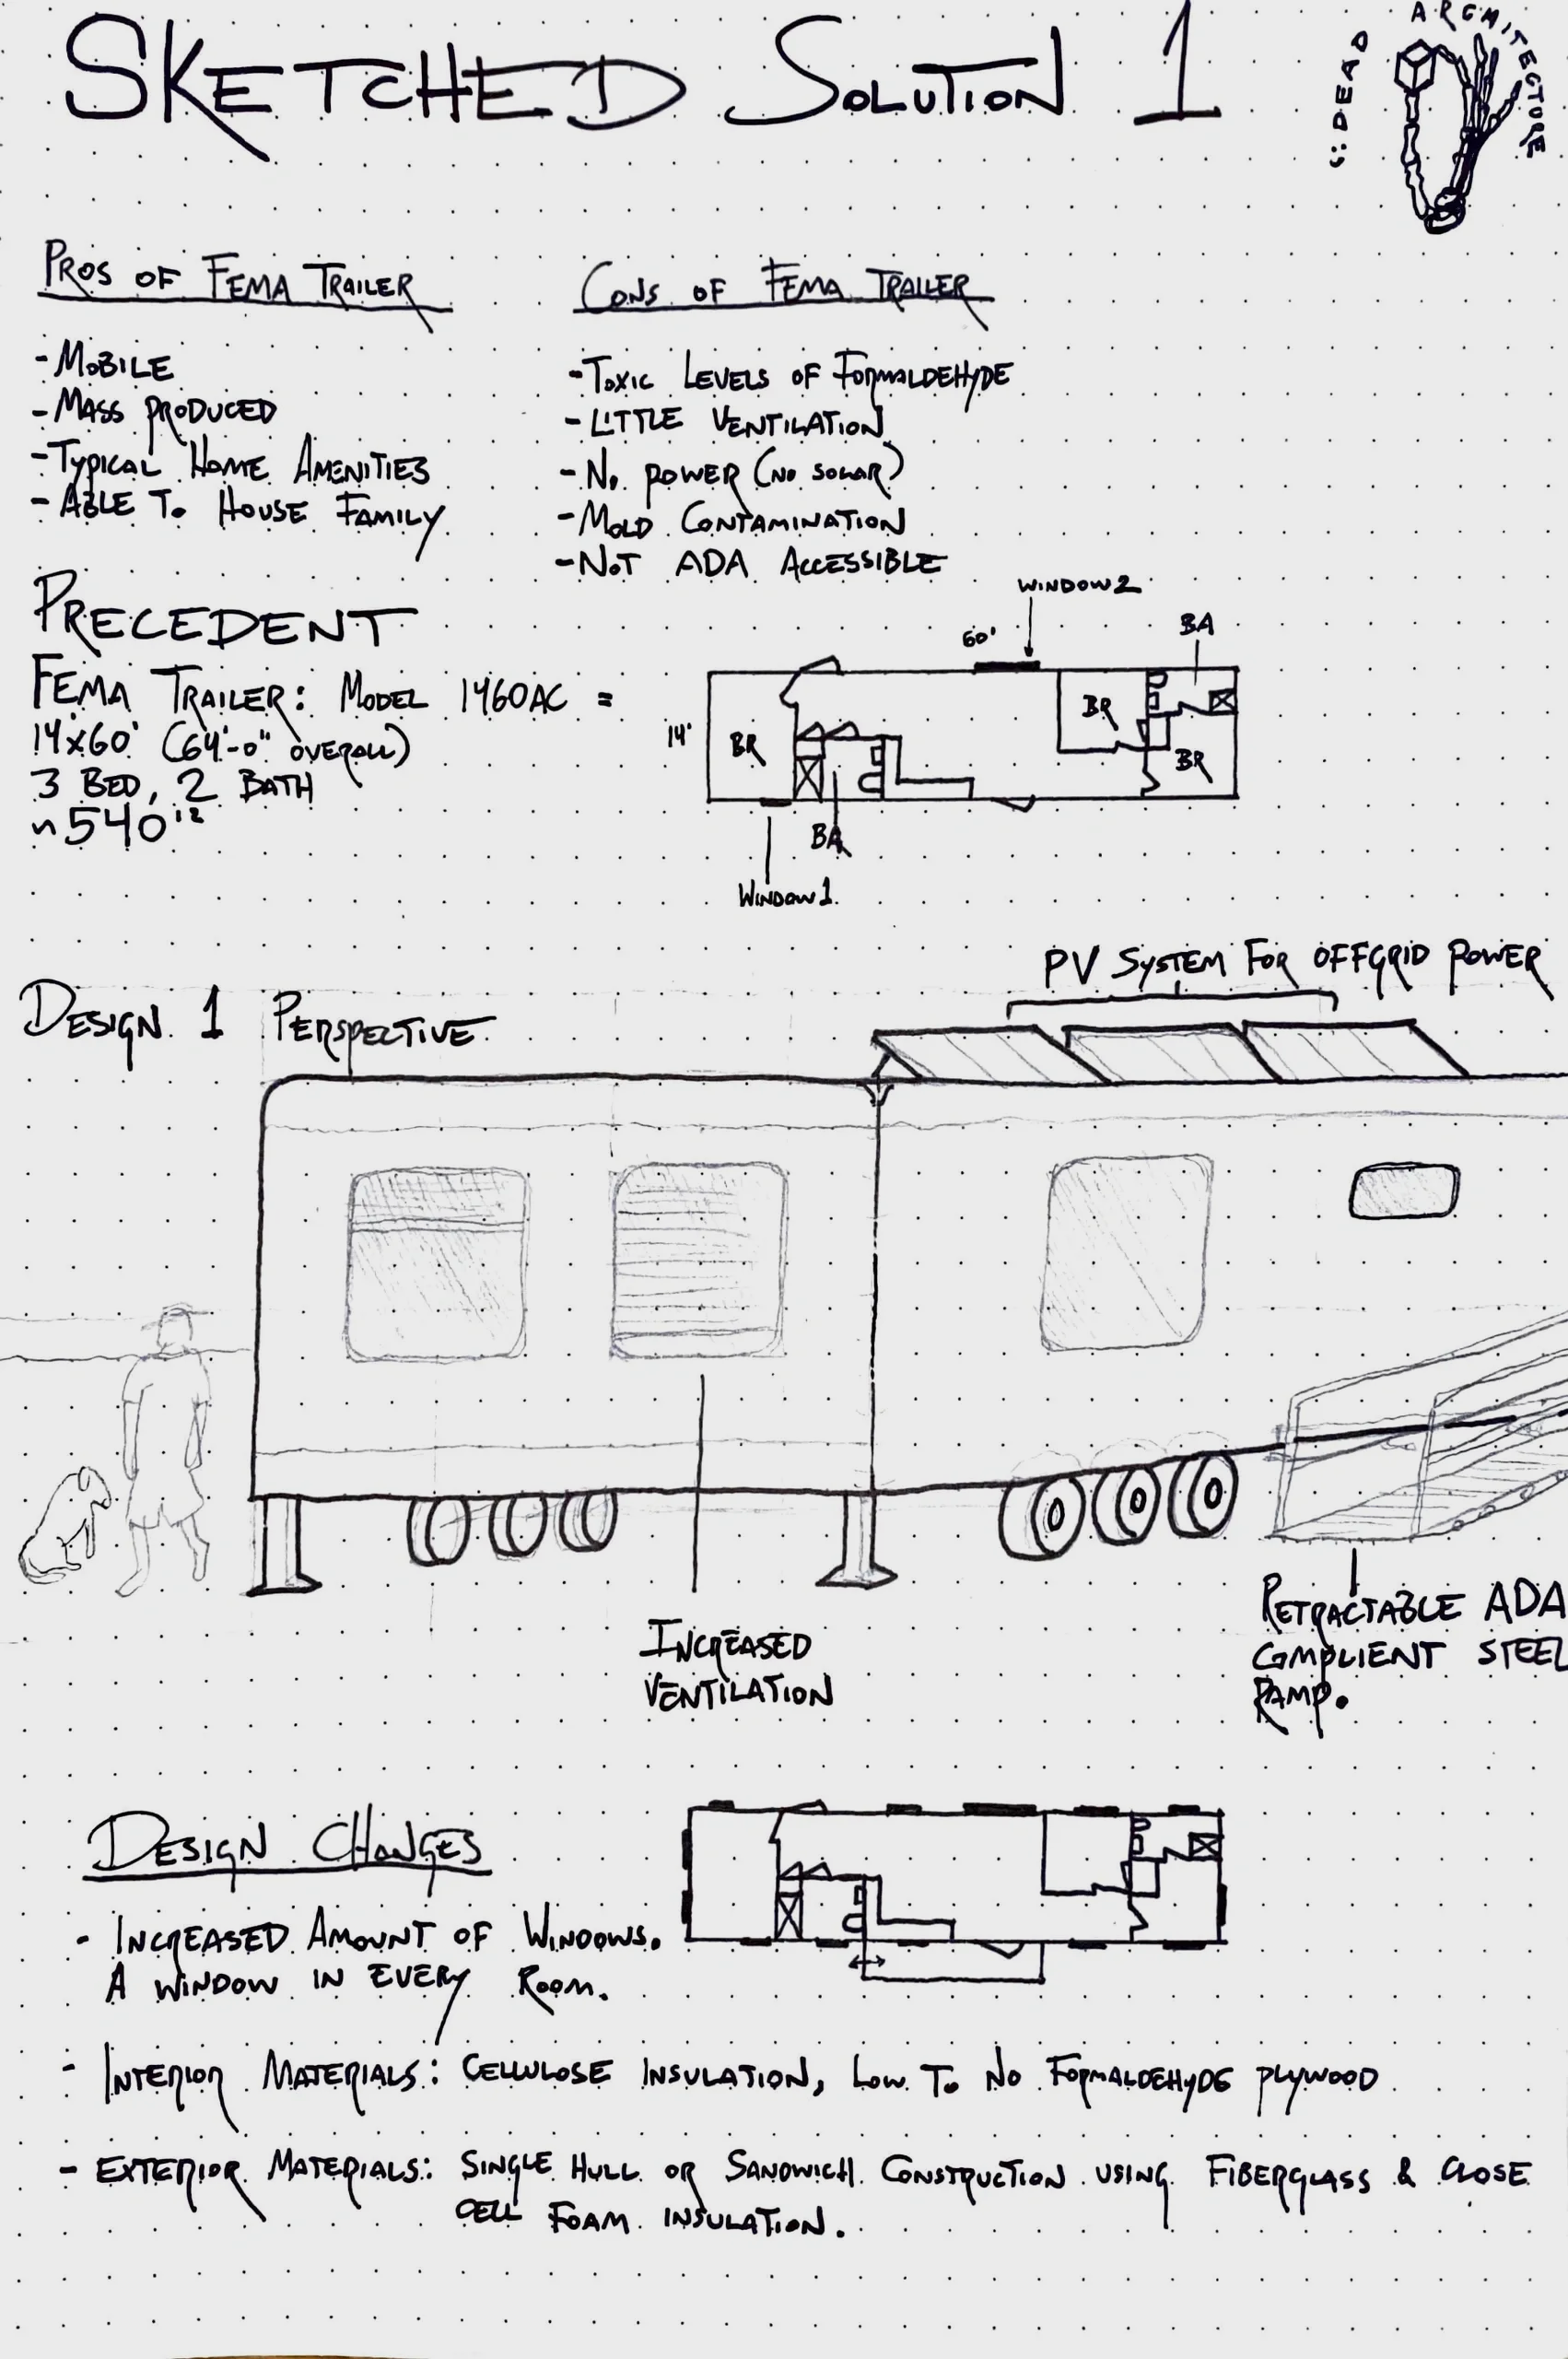 SKETCHED SOLUTION 1
UNDEAD ARCHITECTURE
PROS OF FEMA TRAILER
-MOBILE
-MASS PRODUCED
-TYPICAL HOME AMENITIES
-ABLE TO HOUSE FAMILY
CONS OF FEMA TRAILER
-TOXIC LEVELS OF FORMALDEHYDE
-LITTLE VENTILATION
-NO POWER (NO SOLAR)
-MOLD CONTAMINATION
-NOT ADA ACCESSIBLE
PRECEDENT
FEMA TRAILER: MODEL 1460AC =
14x60' (64'-0" OVERALL)
3 BED, 2 BATH
WINDOW 2
60'
BA
14'
BR
BR
BR
BA
WINDOW 1
PV SYSTEM FOR OFFGRID POWER
DESIGN 1 PERSPECTIVE
INCREASED
VENTILATION
RETRACTABLE ADA
COMPLIENT STEEL
RAMP.
DESIGN CHANGES
- INCREASED AMOUNT OF WINDOWS.
A WINDOW IN EVERY ROOM.
- INTERIOR MATERIALS: CELLULOSE INSULATION, LOW TO NO FORMALDEHYDE PLYWOOD
- EXTERIOR MATERIALS: SINGLE HULL OR SANDWICH CONSTRUCTION USING FIBERGLASS & CLOSE
CELL FOAM INSULATION.